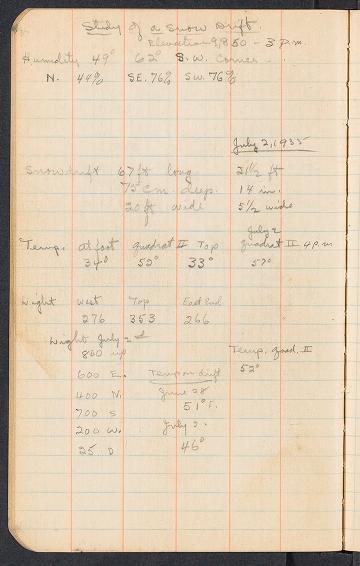 Study of a Snow Drift.
Elevation 9,850 - 3 P.m.
Humidity 49° 62° S.W. Corner.
N. 44% SE. 76% SW. 76%
July 2, 1935
Snowdrift 67 ft long 21 1/2 ft
75 cm. deep. 14 in.
20 ft wide 5 1/2 wide
July 2
Temp. at foot quadrat II Top quadrat II 4 P.m
34° 52° 33° 57°
Light West Top East End
276 353 266
Light July 2nd
800 up Temp. quad. II
600 E. Temp on drift 52°
400 N. June 28
700 S 51° F.
200 W. July 2.
25 D 46°